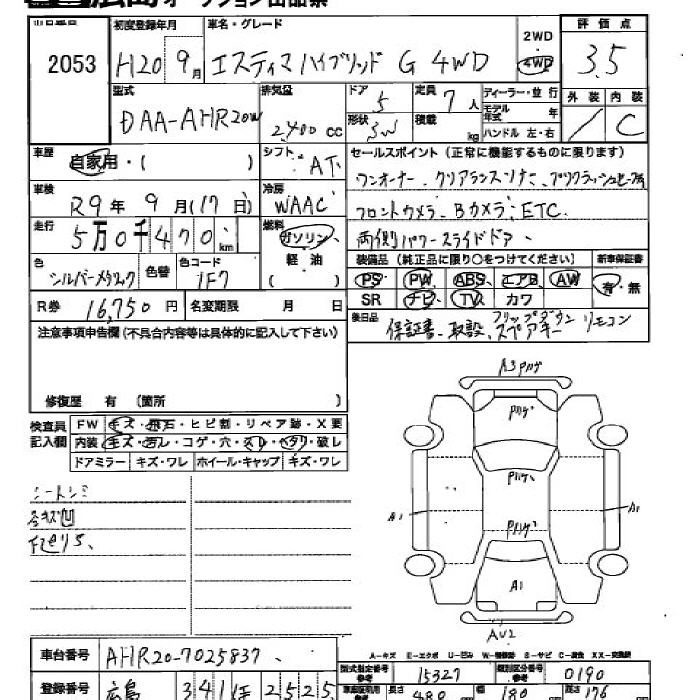 広島オークション出品票
出品番号 初度登録年月 車名・グレード 2WD 評価点
2053 H20 9月 エスティマ ハイブリッド G 4WD 4WD 3.5
型式 排気量 ドア 定員 ディーラー・並行 外装 内装
DAA-AHR20W 2,400 cc 5 7人 モデル年式 年 / C
形状 SW 積載 kg ハンドル 左・右
車歴 自家用・( ) シフト AT セールスポイント (正常に機能するものに限ります)
ワンオーナー、クリアランスソナー、プリクラッシュセーフティ
車検 R9年 9月(17日) 冷房 WAAC
フロントカメラ、Bカメラ、ETC
走行 5万0千470km 燃料 ガソリン、
両側パワースライドドア、
軽油 ( )
装備品 (純正品に限り○をつけてください) 新車保証書
色 シルバーメタリック 色替 色コード 1F7
PS PW ABS エアB AW 有・無
SR ナビ TV カワ
R券 16,750円 名変期限 月 日
後日品 保証書、取説、フリップダウン リモコン
スペアキー
注意事項申告欄 (不具合内容等は具体的に記入して下さい)
修復歴 有 (箇所 )
検査員記入欄 FW キズ・飛石・ヒビ割・リペア跡・X要
内装 キズ・汚レ・コゲ・穴・スレ・ヘタリ・破レ
ドアミラー キズ・ワレ ホイール・キャップ キズ・ワレ
シートシミ
各キズ凹
A1
A1
A1
AU2
A-キズ E-エクボ U-凹み W-補修跡 S-サビ C-腐食 XX-交換歴
車台番号 AHR20-7025837
型式指定番号 参考 15327 類別区分番号 参考 0190
登録番号 広島 341 2525
長さ 480 幅 180 高さ 176